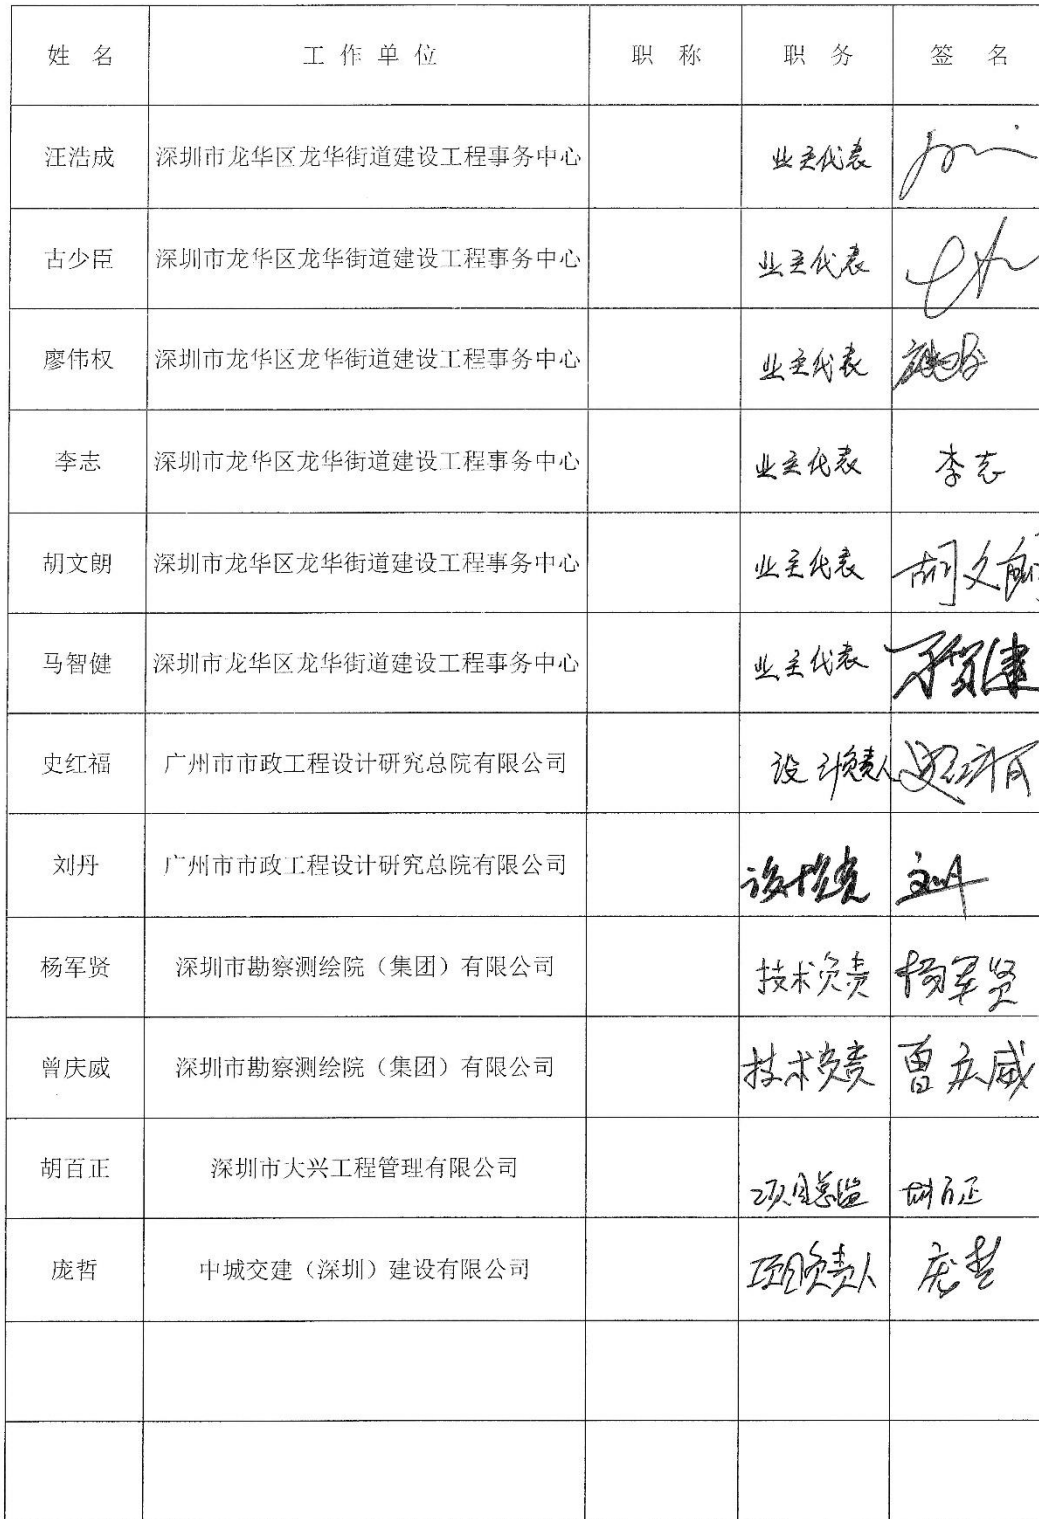 姓 名 工 作 单 位 职 称 职 务 签 名
汪浩成 深圳市龙华区龙华街道建设工程事务中心 业主代表
古少臣 深圳市龙华区龙华街道建设工程事务中心 业主代表
廖伟权 深圳市龙华区龙华街道建设工程事务中心 业主代表
李志 深圳市龙华区龙华街道建设工程事务中心 业主代表 李志
胡文朗 深圳市龙华区龙华街道建设工程事务中心 业主代表 胡文朗
马智健 深圳市龙华区龙华街道建设工程事务中心 业主代表 马智健
史红福 广州市市政工程设计研究总院有限公司 设计负责人
刘丹 广州市市政工程设计研究总院有限公司 刘丹
杨军贤 深圳市勘察测绘院（集团）有限公司 技术负责 杨军贤
曾庆威 深圳市勘察测绘院（集团）有限公司 技术负责 曾庆威
胡百正 深圳市大兴工程管理有限公司 项目总监 胡百正
庞哲 中城交建（深圳）建设有限公司 项目负责人 庞哲